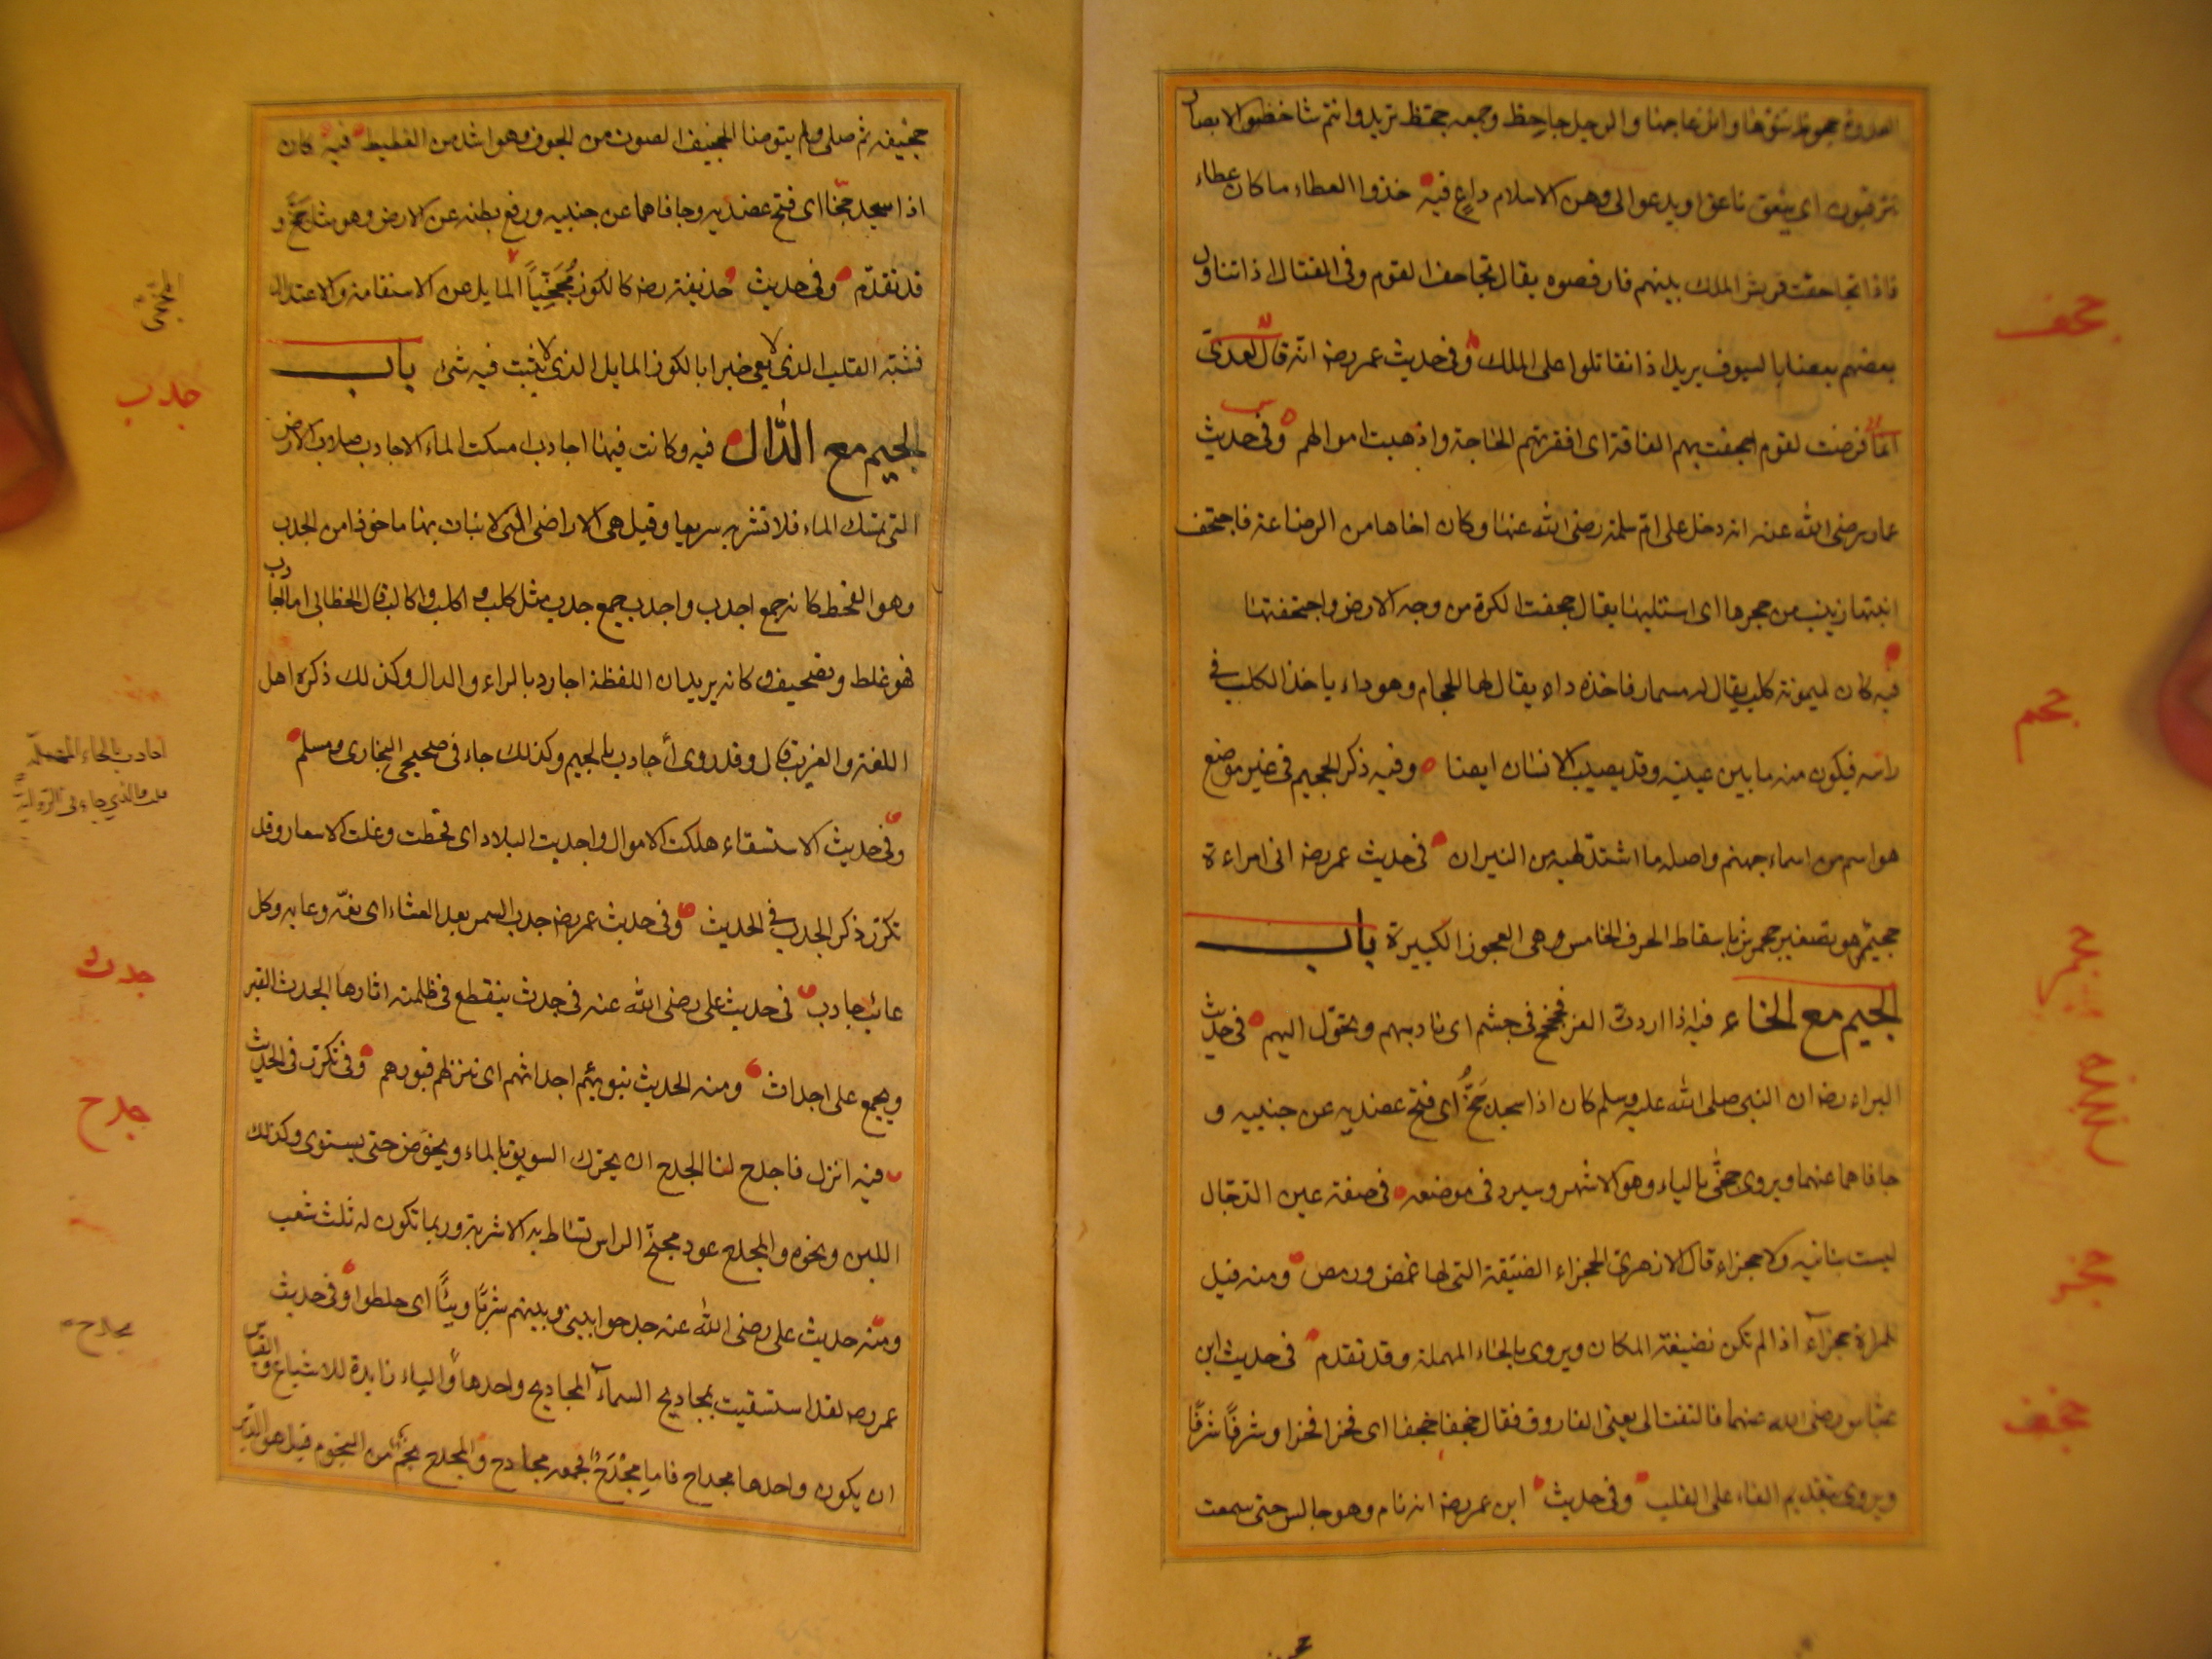 العدوة جحوظ نتؤها وانزعاجها والرجل جاحظ وجمعه جحّظ تريد وانتم شاخصوا الابصار
تترقبون ان ينعق ناعق او يدعو الى وهن الاسلام داع فيه خذوا العطاء ما كان عطاء
فاذا تجاحفت قريش الملك بينهم فارفضوه يقال تجاحف القوم فى القتال اذا تناول
بعضهم بعضا بالسيوف يريد اذا تقاتلوا على الملك وفى حديث عمر رضه انه قال لعدى
انما فرضت لقوم اجحفت بهم الفاقة اى افقرتهم الحاجة واذهبت اموالهم وفى حديث
عمار رضى الله عنه انه دخل على ام سلمة رضى الله عنها وكان اخاها من الرضاعة فاجتحف
ابنتها زينب من حجرها اى استلبها يقال جحفت الكرة من وجه الارض واجتحفتها
فيه كان لميمونة كلب يقال له مسمار فاخذه داء يقال لها الجحام وهو داء ياخذ الكلب فى
راسه فيكون منه ما بين عينيه وقد يصيب الانسان ايضا وفيه ذكر الجحيم فى غير موضع
هو اسم من اسماء جهنم واصله ما اشتد لهبه من النيران فى حديث عمر رضه انى امراءة
جحيمر هو تصغير جحمرش باسقاط الحرف الخامس وهى العجوز الكبيرة باب
الجيم مع الخاء فيه اذا اردت العز فجخجخ فى جشم اى ناد بهم وتحول اليهم فى حديث
البراء رضه ان النبى صلى الله عليه وسلم كان اذا سجد جخّ اى فتح عضديه عن جنبيه و
جافاهما عنهما ويروى جخّى بالياء وهو الاشهر وسيرد فى موضعه فى صفة عين الدجال
ليست بناتيه ولا جخراء قال الازهرى الجخراء الضيقة التى لها غمص ورمص ومنه قيل
للمراة جخراء اذا لم تكن نضيفة المكان ويروى بالحاء المهملة وقد تقدم فى حديث ابن
عباس رضى الله عنهما فالتفت الى يعنى الفاروق فقال جخفا جخفا اى فخرا فخرا وشرفا شرفا
ويروى بتقديم الفاء على القلب وفى حديث ابن عمر رضه انه نام وهو جالس حتى سمعت
جحف
جحم
جخر
جخف
جخيفه ثم صلى ولم يتوضا الجخيف الصوت من الجوف وهو اشد من الغطيط فيه كان
اذا سجد جخا اى فتح عضديه وجافاهما عن جنبيه ورفع بطنه عن الارض وهو مثل جخّ و
قد تقدّم وفى حديث حذيفة رضه كالكوز مُجَخِّياً المايل عن الاستقامة والاعتدال
فشبّه القلب الذى لا يعى خيرا بالكوز المايل الذى لا يثبت فيه شئ باب
الجيم مع الدّال فيه وكانت فيها اجادب امسكت الماء الاجادب صلاب الارض
التى تمسك الماء فلا تشربه سريعا وقيل هى الاراضى التى لا نبات بها ماخوذ من الجدب
وهو القحط كانه جمع اجدب واجدب جمع جدب مثل كلب واكلب واكالب قال الخطابى اما اجادب
فهو غلط وتصحيف وكانه يريد ان اللفظة اجارد بالراء والدال وكذلك ذكره اهل
اللغة والغريب قال وقد روى أجادب بالجيم وكذلك جاء فى صحيحى البخارى ومسلم
وفى حديث الاستسقاء هلكت الاموال واجدبت البلاد اى قحطت وغلت الاسعار وقد
تكرّر ذكر الجدب فى الحديث وفى حديث عمر رضه جدب السمر بعد العشاء اى ذمّه وعابه وكل
عائب جادب فى حديث على رضى الله عنه فى جدث ينقطع فى ظلمته اثارها الجدث القبر
ويجمع على اجداث ومنه الحديث نبوئهم اجداثهم اى ننزلهم قبورهم وفى تكرّر فى الحديث
فيه انزل فاجدح لنا الجدح ان يحرّك السويق بالماء ويخوّض حتى يستوى وكذلك
اللبن ونحوه والمجدح عود مجنّح الراس تساط به الاشربة وربما تكون له ثلث شعب
ومنه حديث على رضى الله عنه جدحوا بينى وبينهم شربًا وبيئًا اى خلطوا وفى حديث
عمر رضه لقد استسقيت بمجاديح السماء المجاديح واحدها والياء زايدة للاشباع والقياس
ان يكون واحدها مجداح فاما مجْدَح فجمعه مجادح والمجدح نجم من النجوم قيل هو الدبران
جدب
جدث
جدح
مجدح